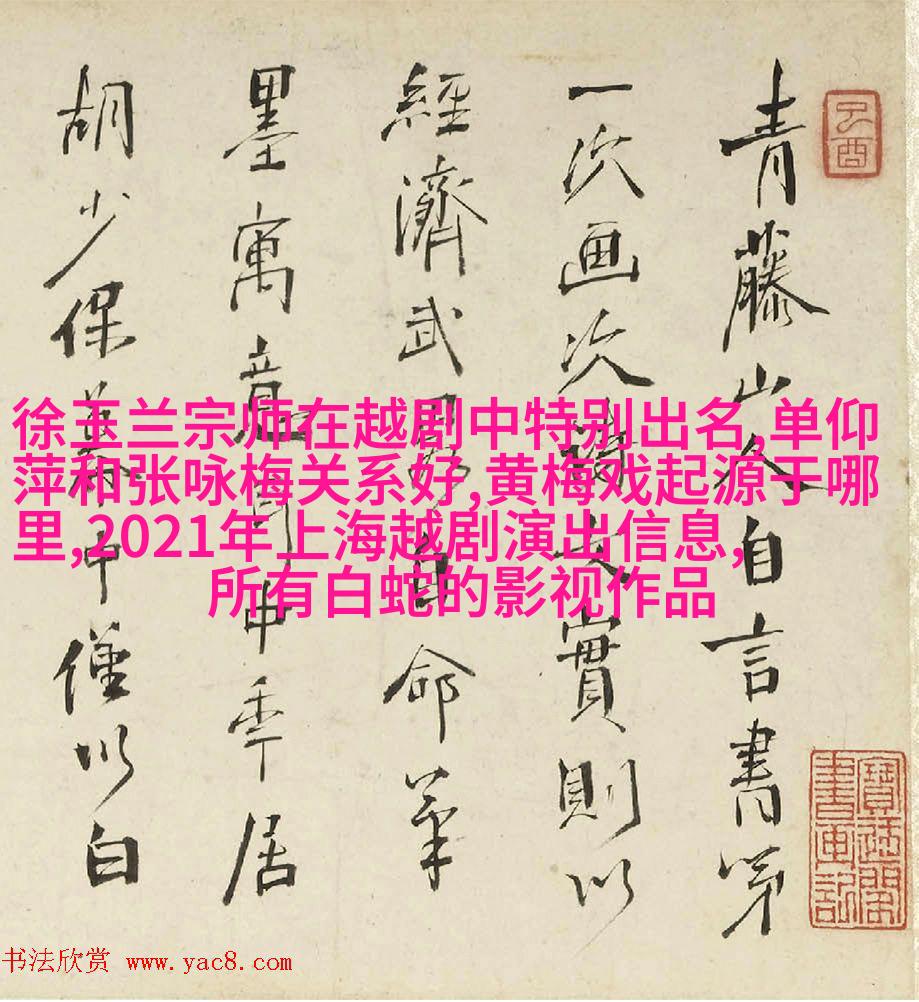 徐玉兰宗师在越剧中特别出名,单仰
萍和张咏梅关系好,黄梅戏起源于哪
里,2021年上海越剧演出信息,
所有白蛇的影视作品
青藤山人自言書第
一次画次詩文實則以
經濟武略自命筆
墨寓意耳中季居
胡少保幕中僅以白
己酉
寶迂閣書畫記
书法欣赏 www.yac8.com